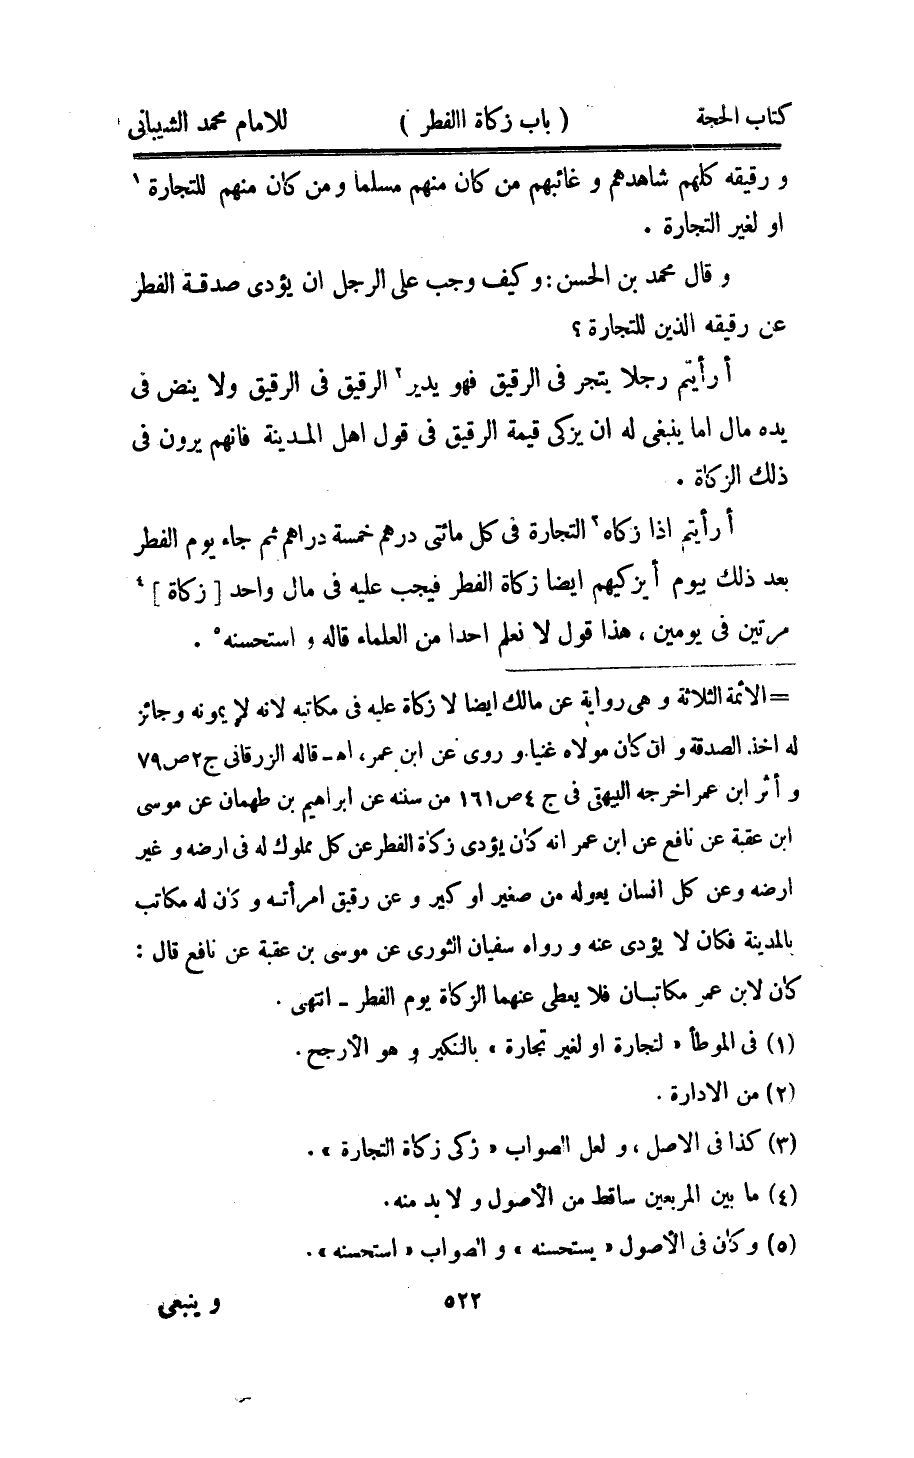 كتاب الحجة ( باب زكاة االفطر ) للامام محمد الشيبانى
و رقيقه كلهم شاهدهم و غائبهم من كان منهم مسلما و من كان منهم للتجارة ١
او لغير التجارة .
و قال محمد بن الحسن : و كيف وجب على الرجل ان يؤدى صدقة الفطر
عن رقيقه الذين للتجارة ؟
أ رأيتم رجلا يتجر فى الرقيق فهو يدير ٢ الرقيق فى الرقيق ولا ينض فى
يده مال اما ينبغى له ان يزكى قيمة الرقيق فى قول اهل المدينة فانهم يرون فى
ذلك الزكاة .
أ رأيتم اذا زكاه ٣ التجارة فى كل مائتى درهم خمسة دراهم ثم جاء يوم الفطر
بعد ذلك بيوم أ يزكيهم ايضا زكاة الفطر فيجب عليه فى مال واحد [ زكاة ] ٤
مرتين فى يومين ، هذا قول لا نعلم احدا من العلماء قاله و استحسنه ٥ .
= الأئمة الثلاثة و هى رواية عن مالك ايضا لا زكاة عليه فى مكاتبه لانه لا يمونه و جائز
له اخذ الصدقة و ان كان مولاه غنيا و روى عن ابن عمر ، اهـ - قاله الزرقانى ج٢ ص٧٩
و أثر ابن عمر اخرجه البيهقى فى ج ٤ ص١٦١ من سننه عن ابراهيم بن طهمان عن موسى
ابن عقبة عن نافع عن ابن عمر انه كان يؤدى زكاة الفطر عن كل مملوك له فى ارضه و غير
ارضه وعن كل انسان يعوله من صغير او كبير و عن رقيق امرأته و كان له مكاتب
بالمدينة فكان لا يؤدى عنه و رواه سفيان الثورى عن موسى بن عقبة عن نافع قال :
كان لابن عمر مكاتبان فلا يعطى عنهما الزكاة يوم الفطر - انتهى .
(١) فى الموطأ « لتجارة او لغير تجارة » بالنكير و هو الأرجح .
(٢) من الادارة .
(٣) كذا فى الاصل ، و لعل الصواب « زكى زكاة التجارة » .
(٤) ما بين المربعين ساقط من الأصول و لا بد منه .
(٥) و كان فى الأصول « يستحسنه » و الصواب « استحسنه » .
٥٢٢ و ينبغى